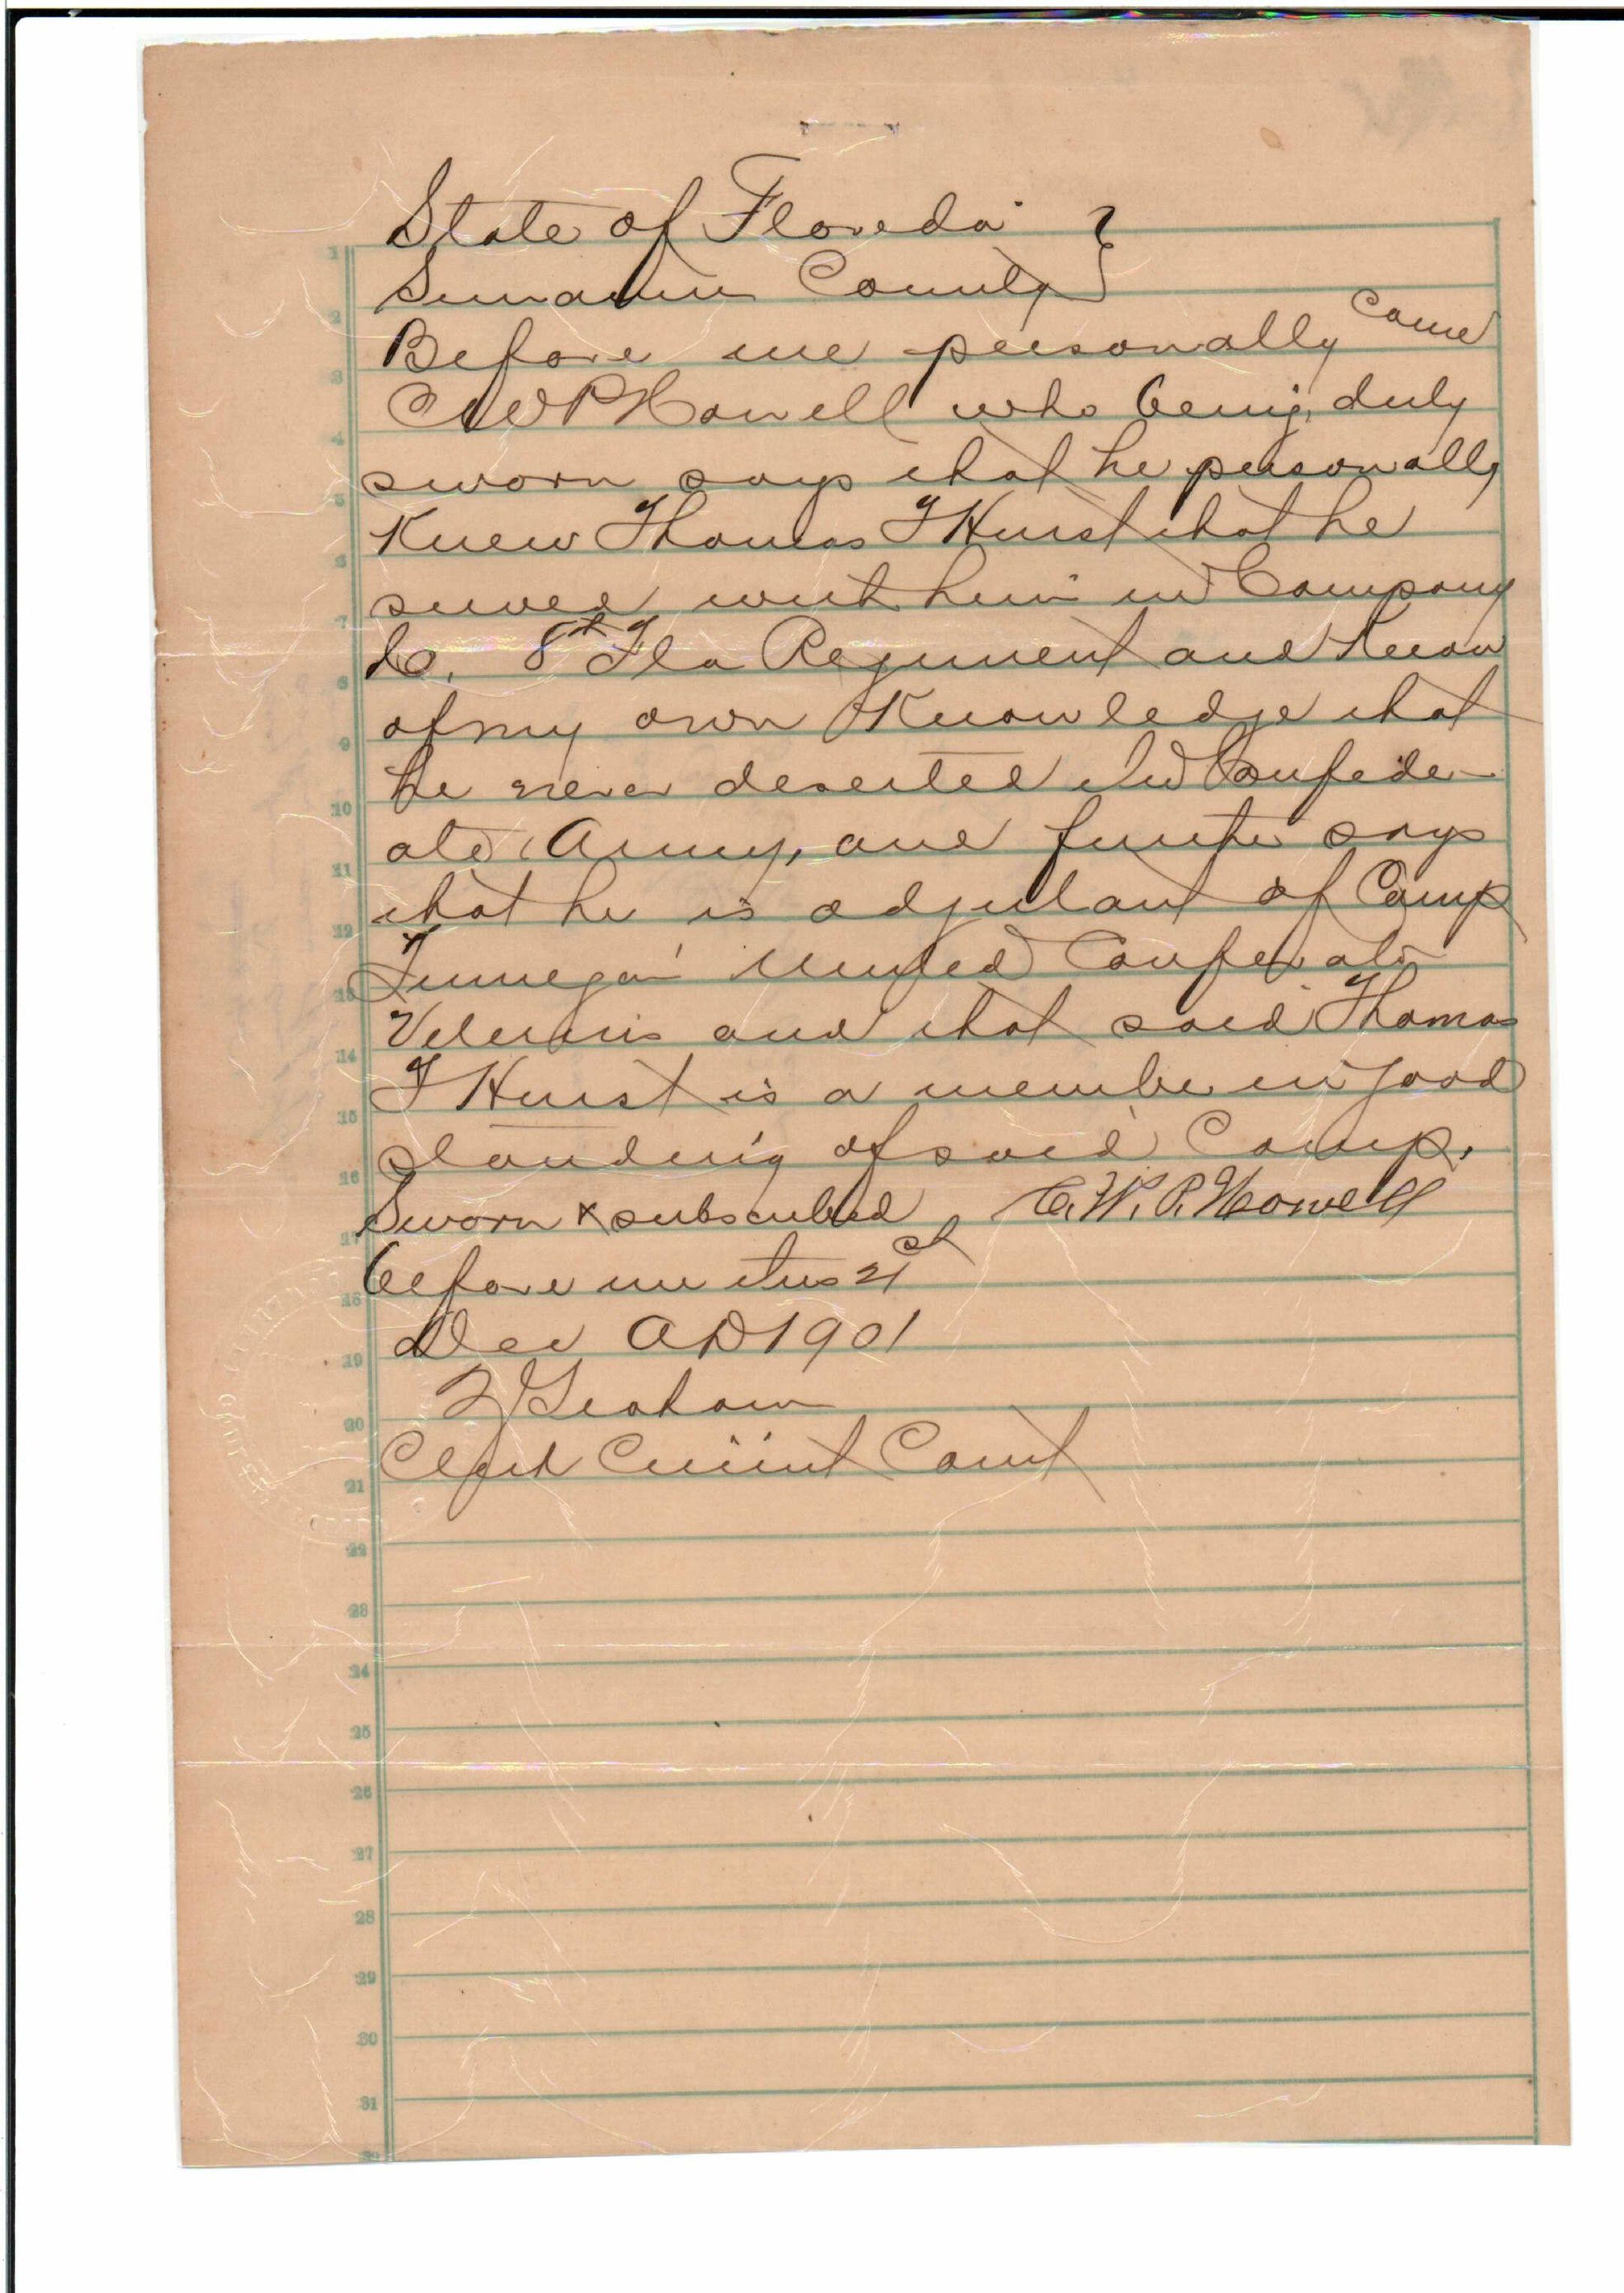 State of Florida }
Suwannee County }
Before me personally came
C W P Howell who being duly
sworn says that he personally
Knew Thomas J Hurst that he
served with him in Company
C. 8th Fla Regiment and Know
of my own Knowledge that
he never deserted the Confeder
ate Army, and further says
that he is adjutant of Camp
Finnegan United Confederate
Veterans and that said Thomas
J Hurst is a member in good
standing of said Camp.
Sworn & subscribed C. W. P. Howell
before me this 21st
Dec AD 1901
Graham
Clerk Circuit Court
1
2
3
4
5
6
7
8
9
10
11
12
13
14
15
16
17
18
19
20
21
22
23
24
25
26
27
28
29
30
31